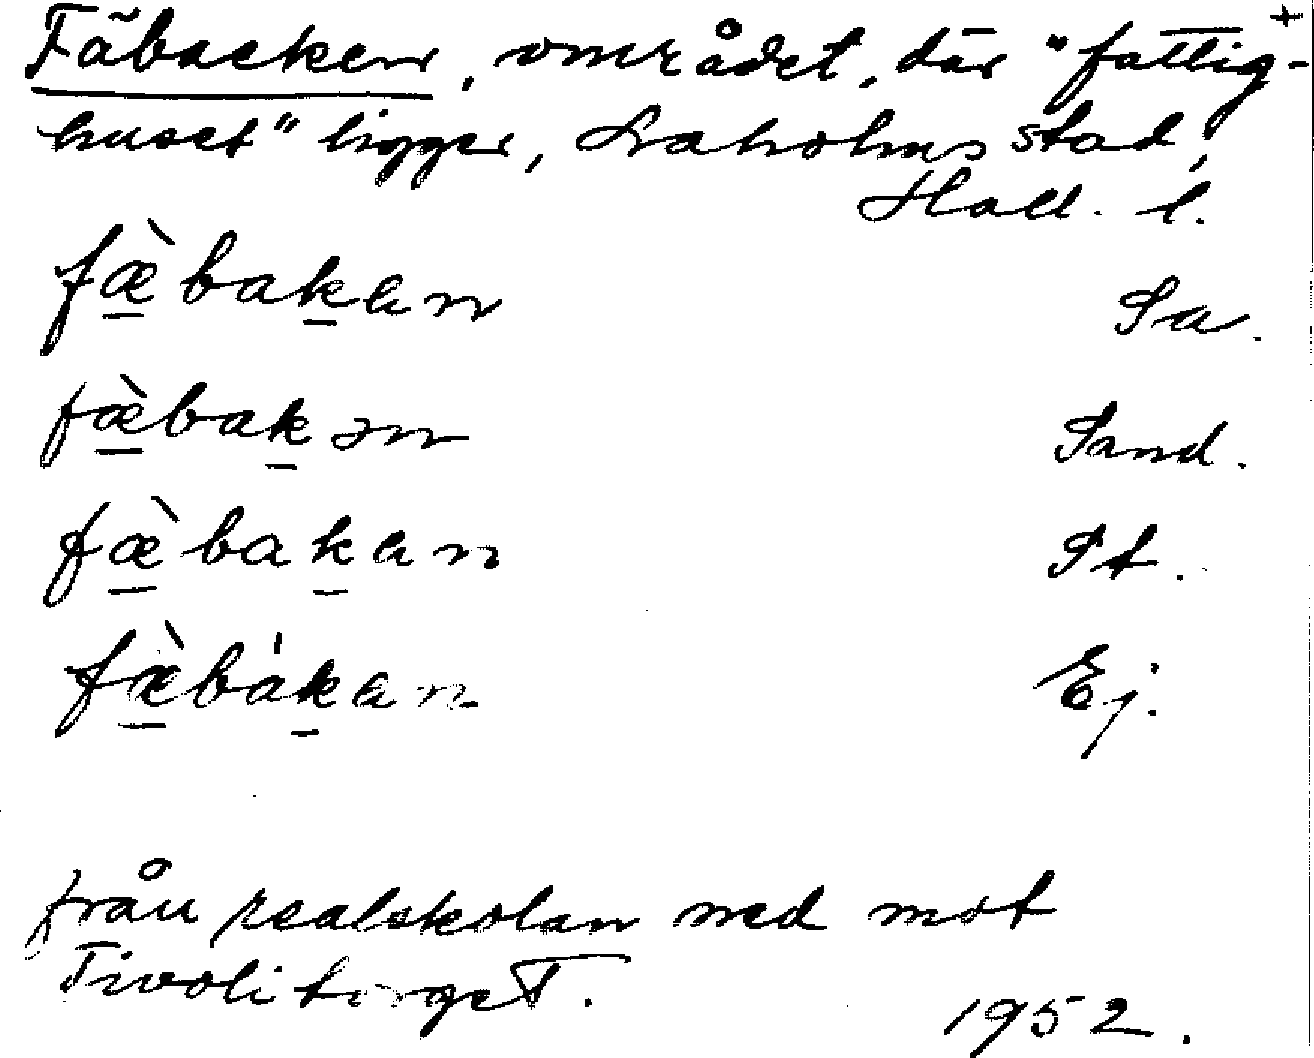 Fäbacken, området, där "fattig- +
huset" ligger, Laholms stad,
Hall. l.
fæ̀bakan Sa.
fæ̀bakən Sand.
fæ̀bakan St.
fæ̀bàkan Ej.
från realskolan ned mot
Tivolitorget.
1952.